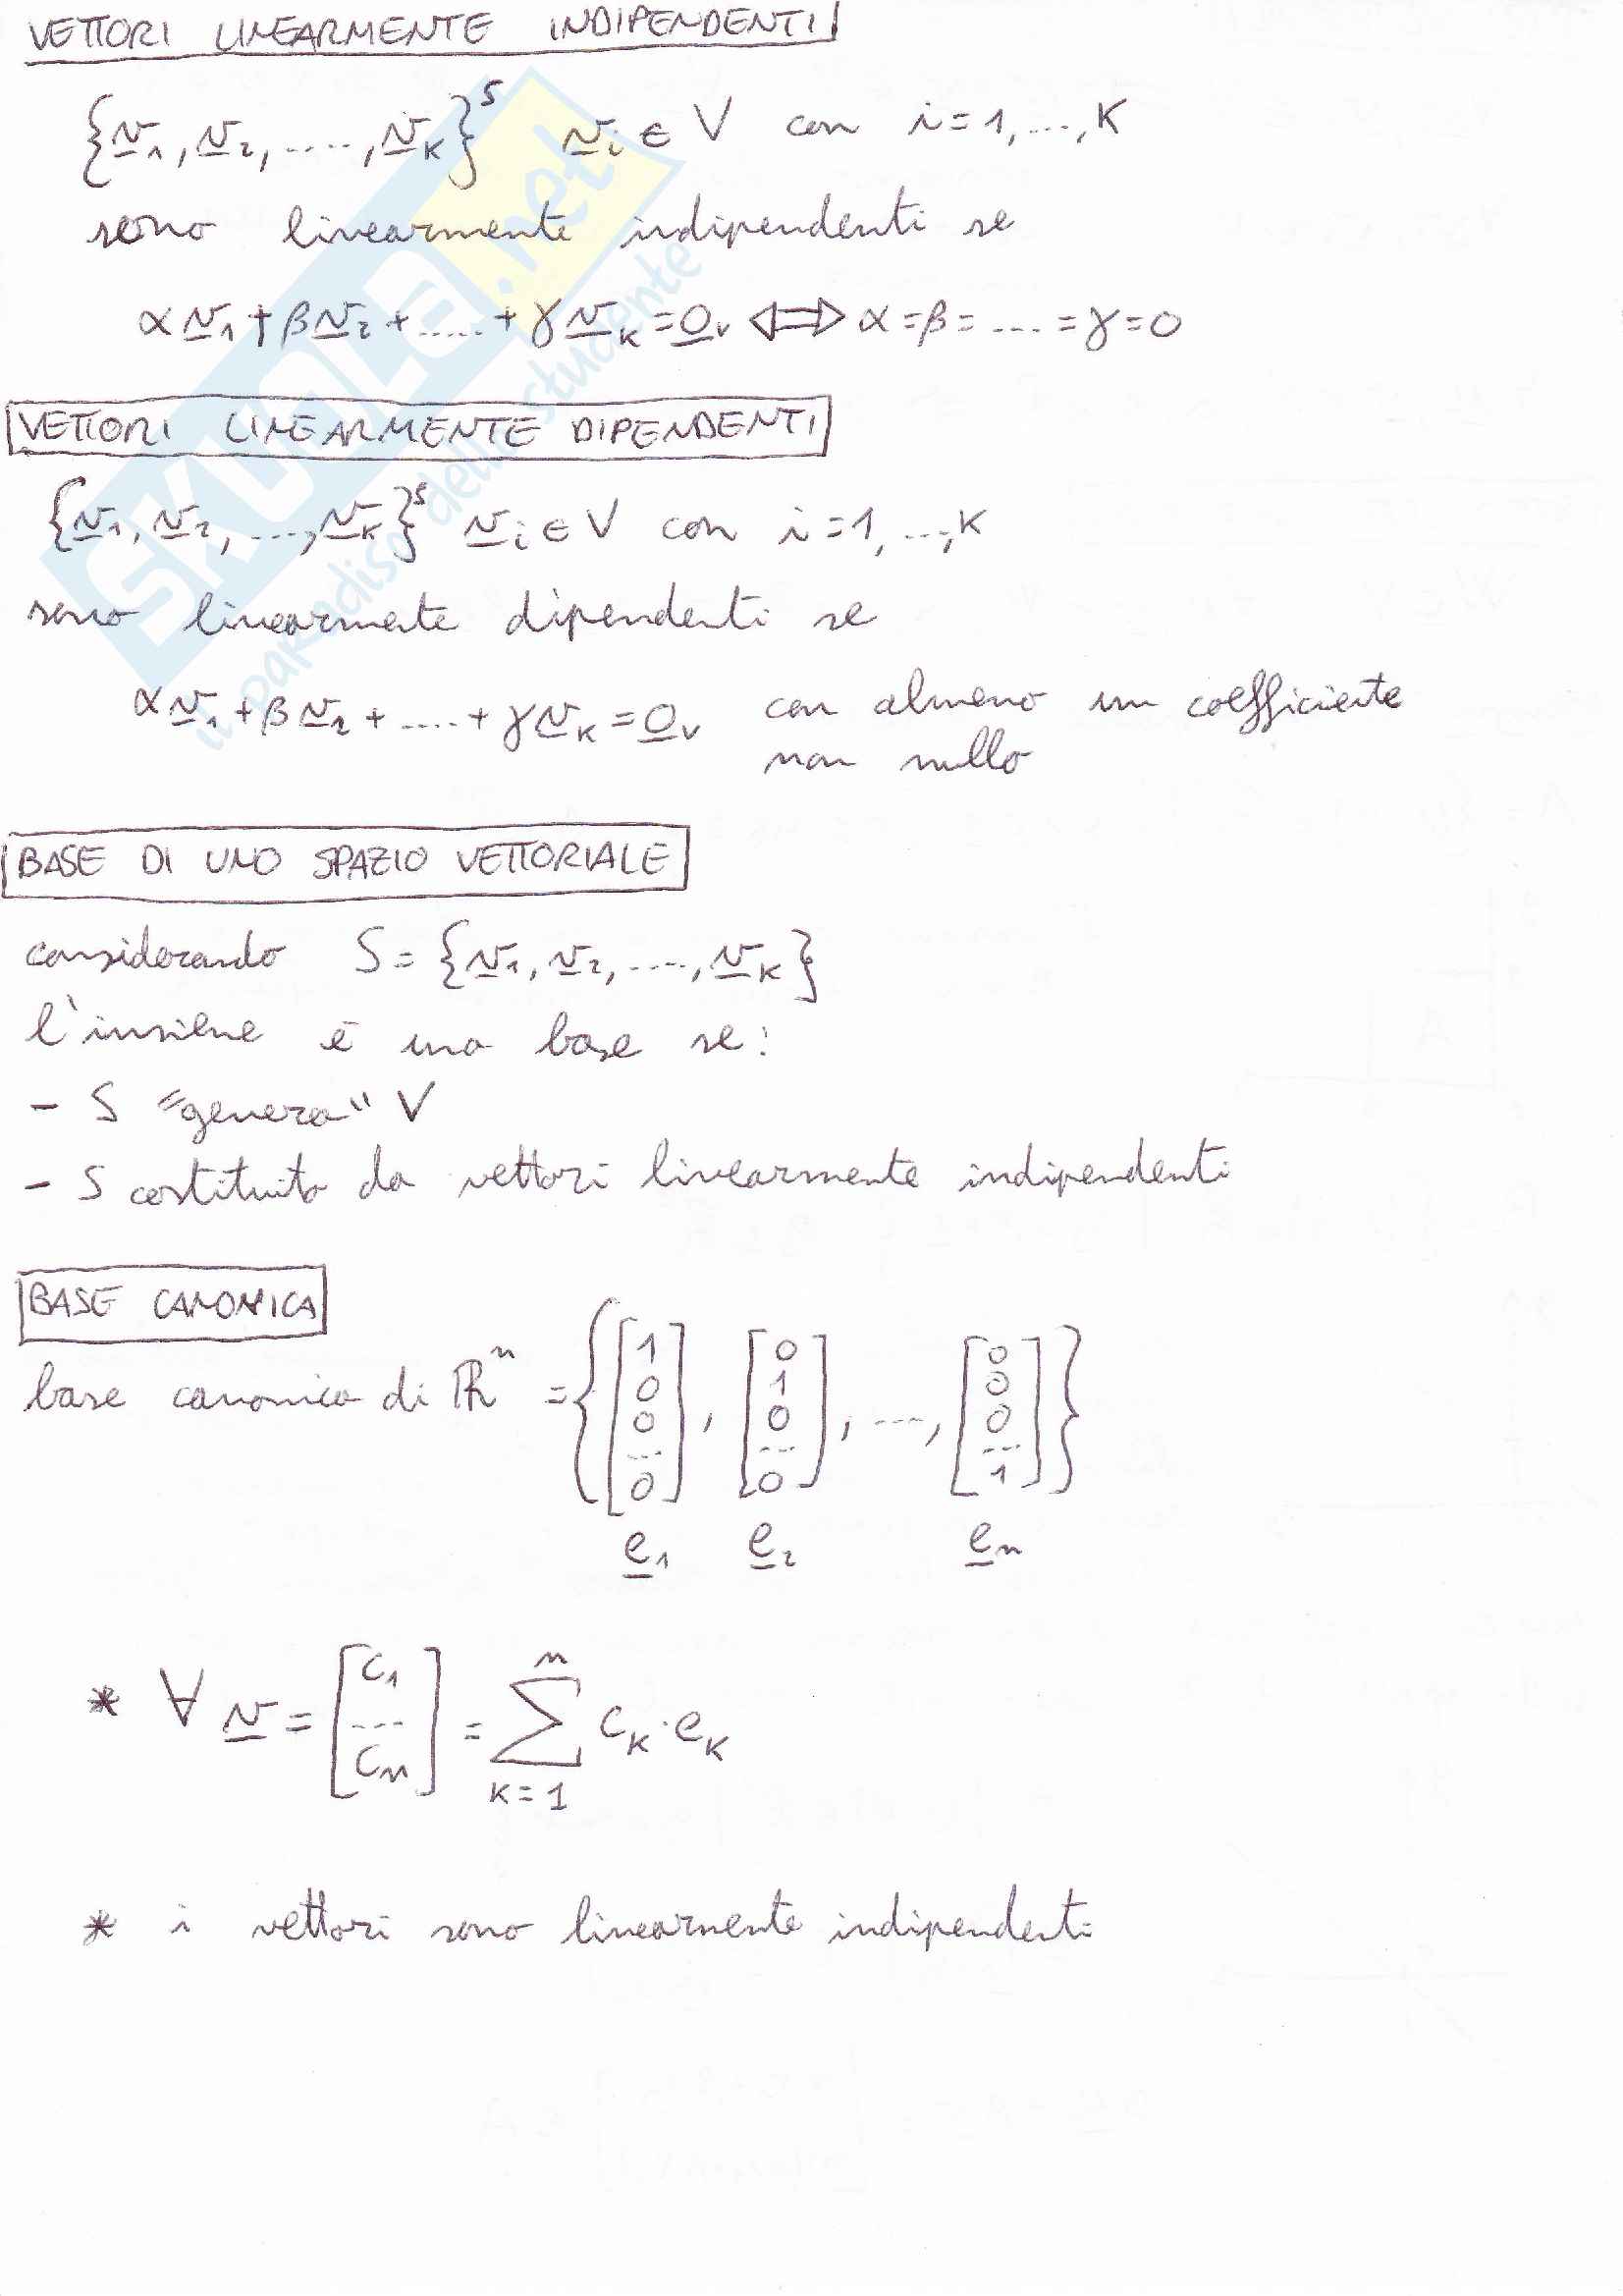 VETTORI LINEARMENTE INDIPENDENTI
{v̲₁, v̲₂, ...., v̲ₖ}ˢ v̲ᵢ ∈ V con i = 1, ..., K
sono linearmente indipendenti se
αv̲₁ + βv̲₂ + ..... + γv̲ₖ = 0̲ᵥ ⟺ α = β = .... = γ = 0
VETTORI LINEARMENTE DIPENDENTI
{v̲₁, v̲₂, ..., v̲ₖ}ˢ v̲ᵢ ∈ V con i = 1, ..., K
sono linearmente dipendenti se
αv̲₁ + βv̲₂ + .... + γv̲ₖ = 0̲ᵥ con almeno un coefficiente
non nullo
BASE DI UNO SPAZIO VETTORIALE
considerando S = {v̲₁, v̲₂, ...., v̲ₖ}
l'insieme è una base se:
- S "genera" V
- S costituito da vettori linearmente indipendenti
BASE CANONICA
base canonica di ℝⁿ = {[1 0 0 ... 0], [0 1 0 ... 0], ..., [0 0 0 ... 1]}
e̲₁ e̲₂ e̲ₙ
* ∀ v̲ = [c₁ ... cₙ] = ∑ₖ₌₁ⁿ cₖ · eₖ
* i vettori sono linearmente indipendenti
SKUOLA.net
il paradiso dello studente